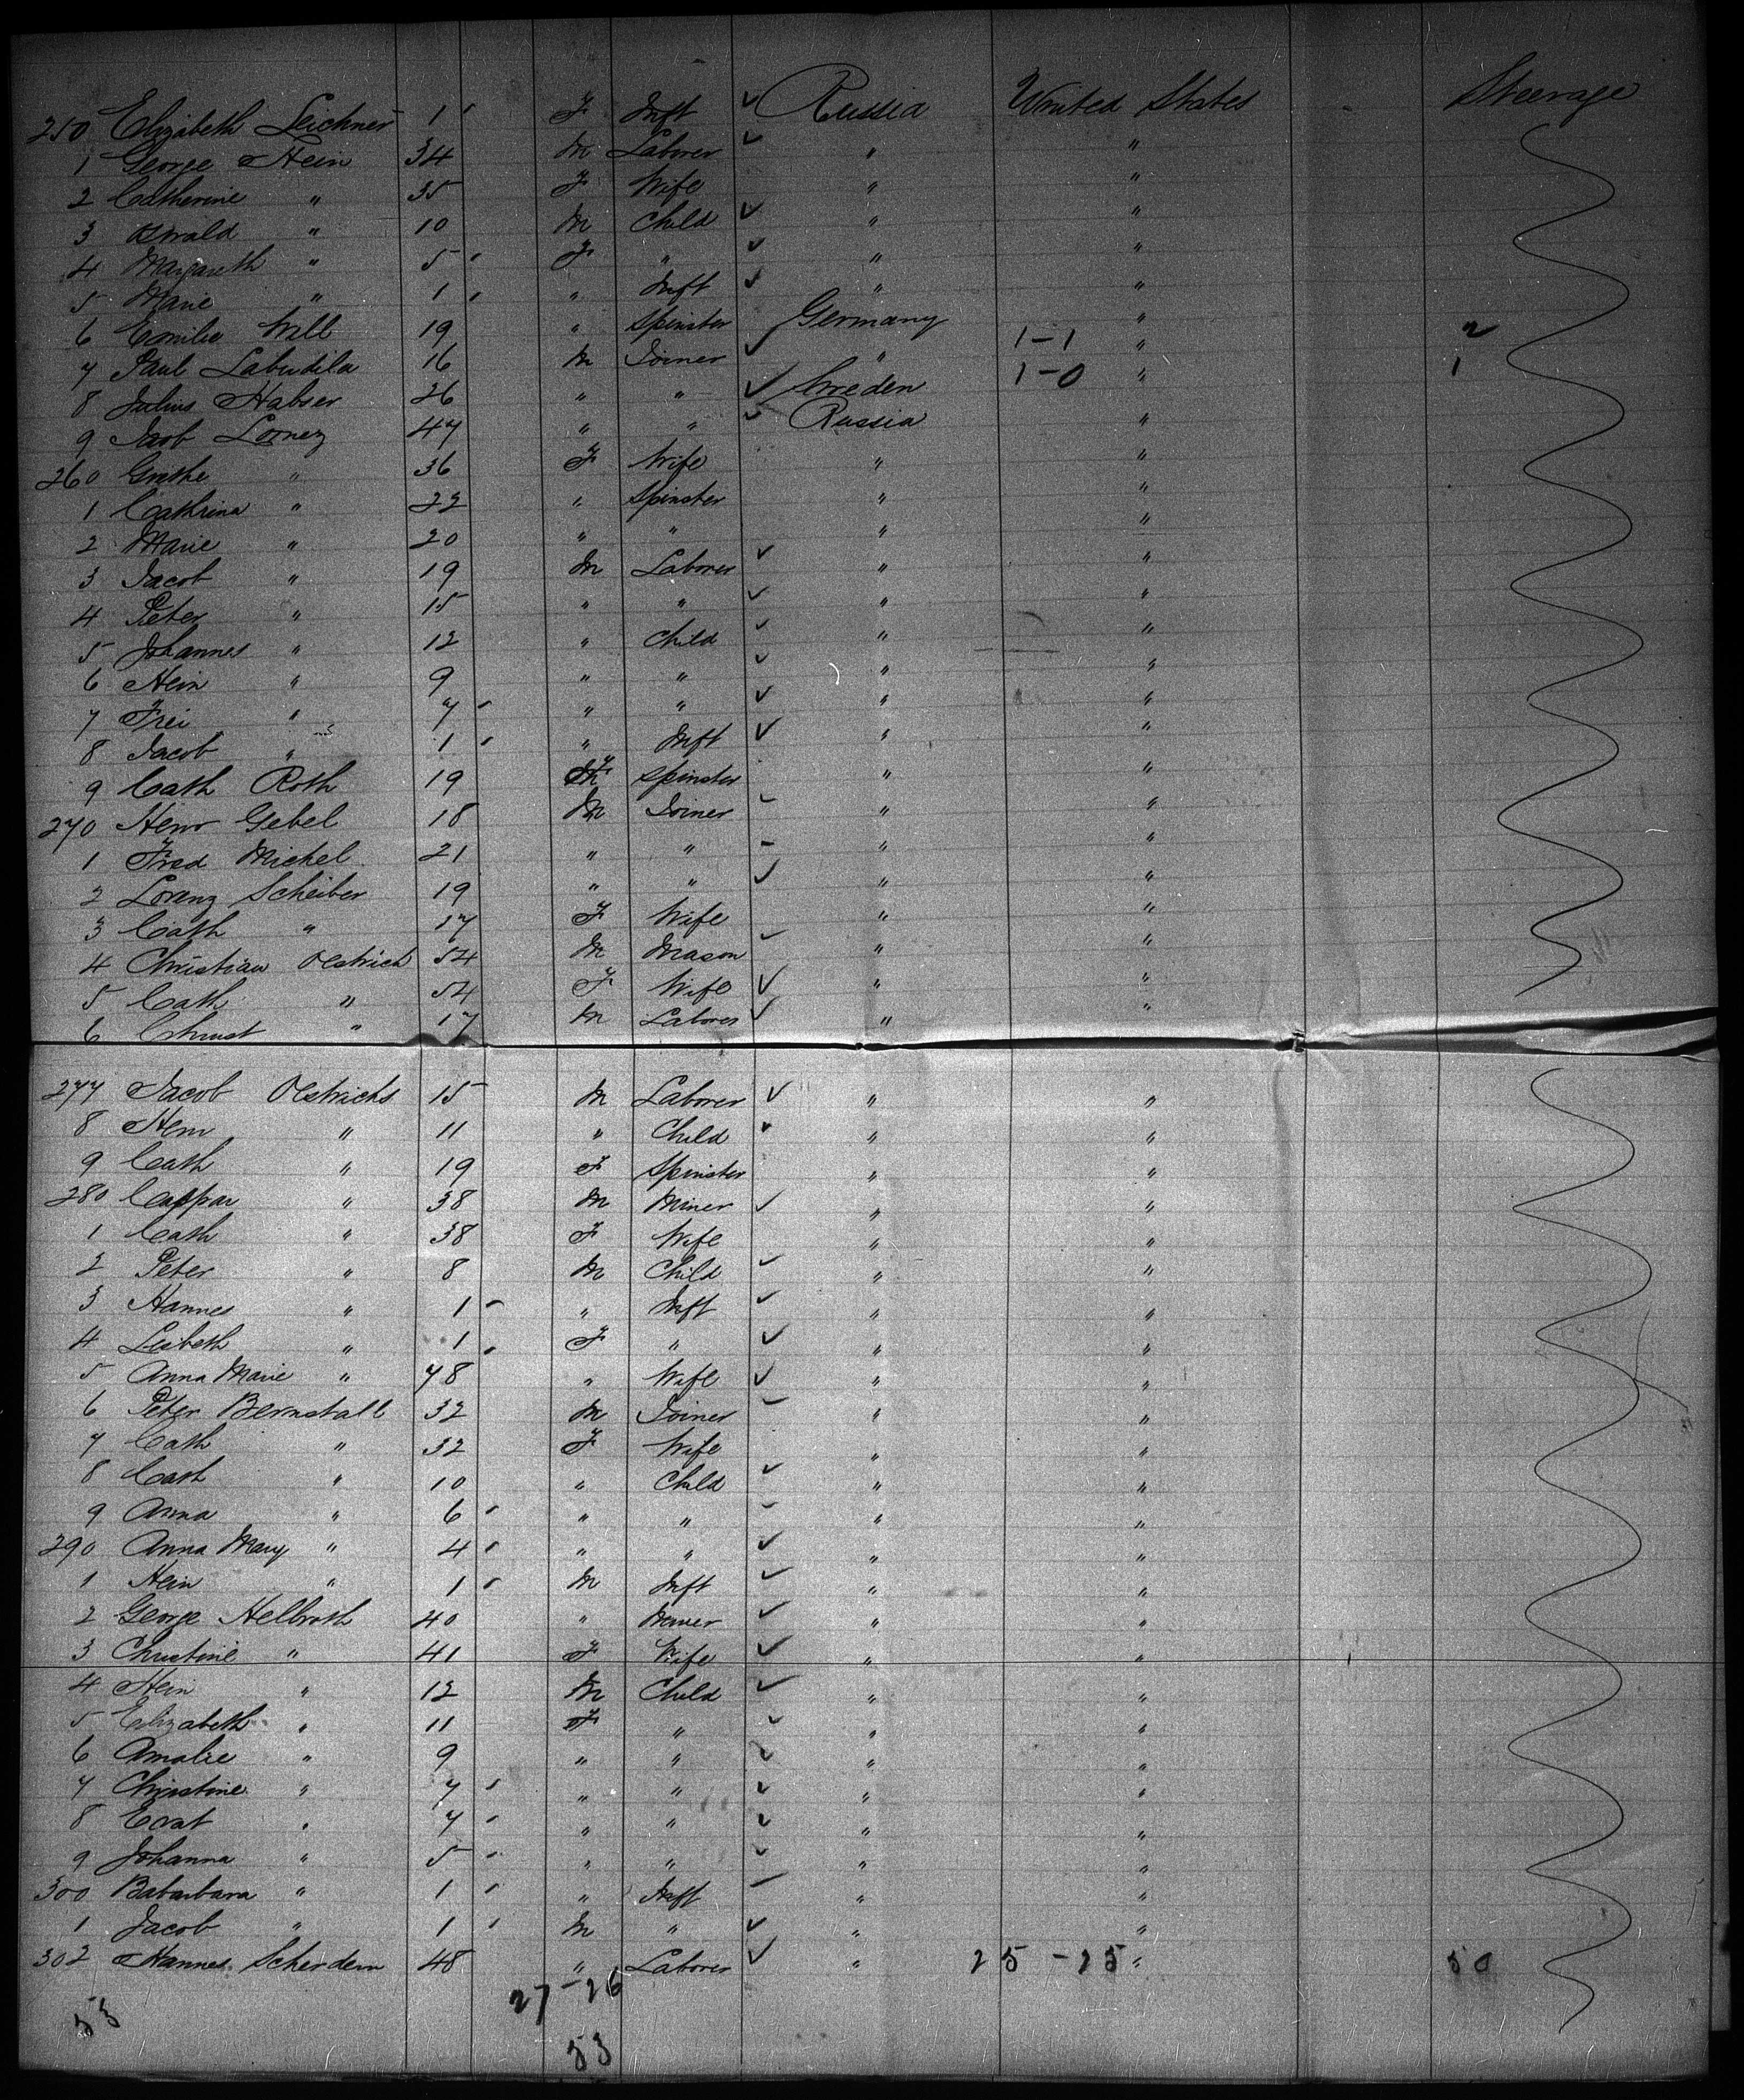 250 Elizabeth Leichner 1 F Inft Russia United States Steerage
1 George Hein 34 M Laborer " "
2 Catherine " 35 F Wife " "
3 Oswald " 10 M Child " "
4 Margareth " 5 F " " "
5 Marie " 1 " Inft " "
6 Emilie Will 19 " Spinster Germany 1-1 " 2
7 Paul Labudila 16 M Joiner " 1-0 " 1
8 Julius Habser 26 " " Sweden
9 Jacob Lornez 47 " " Russia "
260 Grethe " 36 F Wife " "
1 Cathrina " 22 " Spinster " "
2 Marie " 20 " " " "
3 Jacob " 19 M Laborer " "
4 Peter " 15 " " " "
5 Johannes " 12 " Child " "
6 Hein " 9 " " " "
7 Frei " 7 " " " "
8 Jacob " 1 " Inft " "
9 Cath Roth 19 F Spinster " "
270 Henr Gebel 18 M Joiner " "
1 Fred Michel 21 " " " "
2 Lorenz Scheiber 19 " " " "
3 Cath " 17 F Wife " "
4 Christian Oestrich 54 M Mason " "
5 Cath " 54 F Wife " "
6 Christ " 17 M Laborer " "
277 Jacob Oestrichs 15 M Laborer " "
8 Henr " 11 " Child " "
9 Cath " 19 F Spinster " "
280 Caspar " 38 M Miner " "
1 Cath " 38 F Wife " "
2 Peter " 8 M Child " "
3 Hannes " 1 " Inft " "
4 Lisbeth " 1 F " " "
5 Anna Marie " 78 " Wife " "
6 Peter Bernstall 32 M Joiner " "
7 Cath " 32 F Wife " "
8 Cath " 10 " Child " "
9 Anna " 6 " " " "
290 Anna Mary " 4 " " " "
1 Hein " 1 M Inft " "
2 George Helbroth 40 " Miner " "
3 Christine " 41 F Wife " "
4 Hein " 12 M Child " "
5 Elizabeth " 11 F " " "
6 Amalie " 9 " " " "
7 Christine " 7 " " " "
8 Ecat " 7 " " " "
9 Johanna " 5 " " " "
300 Babarbara " 1 " Inft " "
1 Jacob " 1 M " " "
302 Hannes Scherdem 48 " Laborer " 25-25 " 50
53 27-26
53